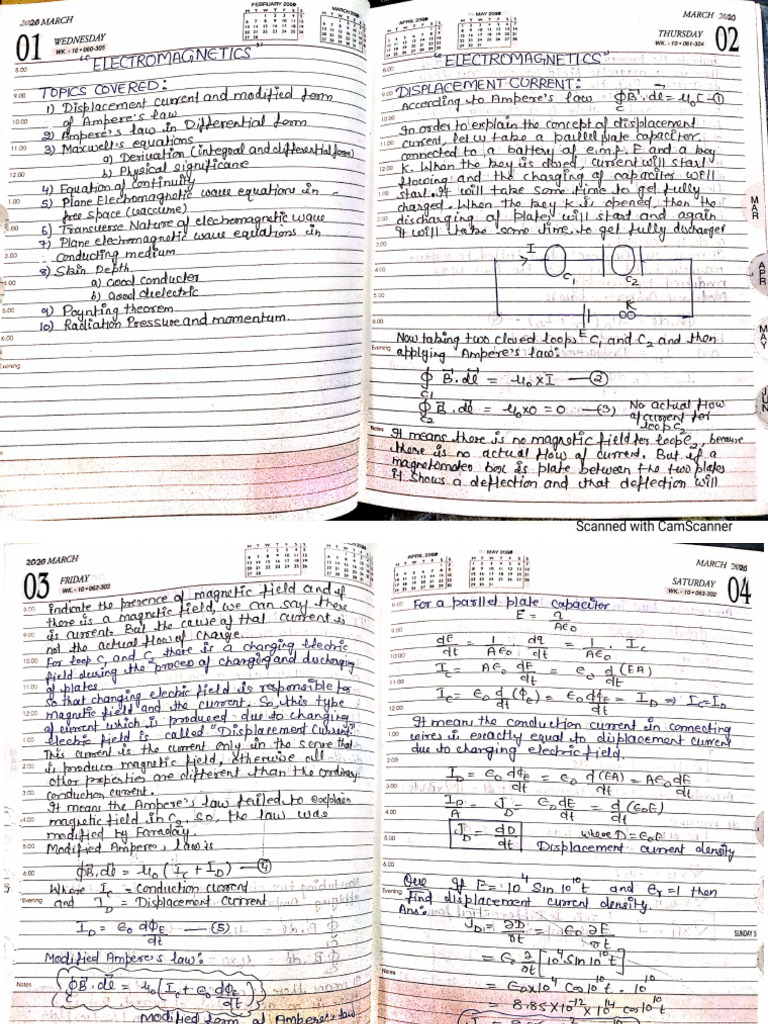 2020 MARCH
01 WEDNESDAY
WK. - 10 • 060-305
FEBRUARY 2020
MARCH 2020
"ELECTROMAGNETICS"
TOPICS COVERED:
1) Displacement current and modified form
of Ampere's law
2) Ampere's law in Differential form
3) Maxwell's equations
a) Derivation (integral and differential form)
b) Physical significance
4) Equation of continuity
5) Plane Electromagnetic wave equations in
free space (vaccume)
6) Transverse Nature of electromagnetic wave
7) Plane electromagnetic wave equations in
conducting medium
8) Skin Depth
a) Good conductor
b) Good dielectric
9) Poynting theorem
10) Radiation Pressure and momentum.
APRIL 2020
MAY 2020
MARCH 2020
THURSDAY 02
WK. - 10 • 061-304
"ELECTROMAGNETICS"
DISPLACEMENT CURRENT:
According to Ampere's law ∮B.dl = μ₀I -①
In order to explain the concept of displacement
current, let us take a parallel plate capacitor
connected to a battery of e.m.f. E and a key
K. When the key is closed, current will start
flowing and the charging of capacitor will
start. It will take some time to get fully
charged. When the key K is opened, then the
discharging of plates will start and again
It will take some time to get fully discharged
I
C₁ C₂
K
E
Now taking two closed loops C₁ and C₂ and then
applying Ampere's law:
∮ B.dl = μ₀ x I —②
C₁
∮ B.dl = μ₀ x 0 = 0 —(3) No actual flow
C₂ of current for
loop C₂
Notes It means there is no magnetic field for loop C₂, because
there is no actual flow of current. But if a
magnetometer box is plate between the two plates
it shows a deflection and that deflection will
MAR
APR
MAY
JUN
Scanned with CamScanner
2020 MARCH
03 FRIDAY
WK. - 10 • 062-303
indicate the presence of magnetic field and if
there is a magnetic field, we can say there
is current. But the cause of that current is
not the actual flow of charge.
For loop C₁ and C₂ there is a changing electric
field during the process of charging and discharging
of plates.
So that changing electric field is responsible for
magnetic field and the current. So, this type
of current which is produced due to changing
electric field is called "Displacement Current".
This current is the current only in the sense that
is produce magnetic field, otherwise all
other properties are different than the ordinary
conduction current.
It mean the Ampere's law failed to explain
magnetic field in C₂. So, the law was
modified by Faraday.
Modified Ampere's law is
∮B.dl = μ₀ (I_C + I_D) —④
Where I_C = Conduction current
and I_D = Displacement Current
I_D = ε₀ dΦ_E/dt —(5)
Modified Ampere's law:
Notes ∮B.dl = μ₀ [I_C + ε₀ dΦ_E/dt]
Modified form of Ampere's law
APRIL 2020
MAY 2020
MARCH 2020
SATURDAY 04
WK. - 10 • 063-302
For a parllel plate capacitor
E = q/Aε₀
dE/dt = 1/Aε₀ . dq/dt = 1/Aε₀ . I_C
I_C = Aε₀ dE/dt = ε₀ d/dt (EA)
I_C = ε₀ d/dt (Φ_E) = ε₀ dΦ_E/dt = I_D ⇒ I_C = I_D
It means the conduction current in connecting
wires is exactly equal to displacement current
due to changing electric field.
I_D = ε₀ dΦ_E/dt = ε₀ d/dt (EA) = Aε₀ dE/dt
I_D/A = J_D = ε₀ dE/dt = d/dt (ε₀E)
J_D = dD/dt where D = ε₀E
Displacement current density
Que If E = 10⁴ Sin 10¹⁰t and εr = 1 then
Find displacement current density.
Ans: J_D = ∂D/∂t = ε₀ ∂E/∂t
= ε₀ ∂/∂t [10⁴ Sin 10¹⁰t]
= ε₀ x 10⁴ Cos 10¹⁰t . 10¹⁰
= 8.85 x 10⁻¹² x 10¹⁴ cos 10¹⁰t
SUNDAY 5